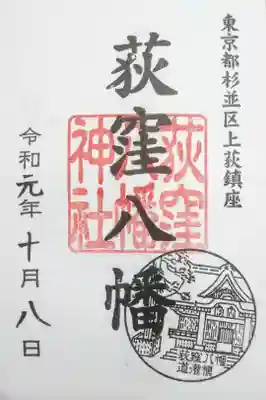 東京都杉並区上荻鎮座
荻窪八幡
荻窪
八幡
神社
令和元年十月八日
荻窪八幡